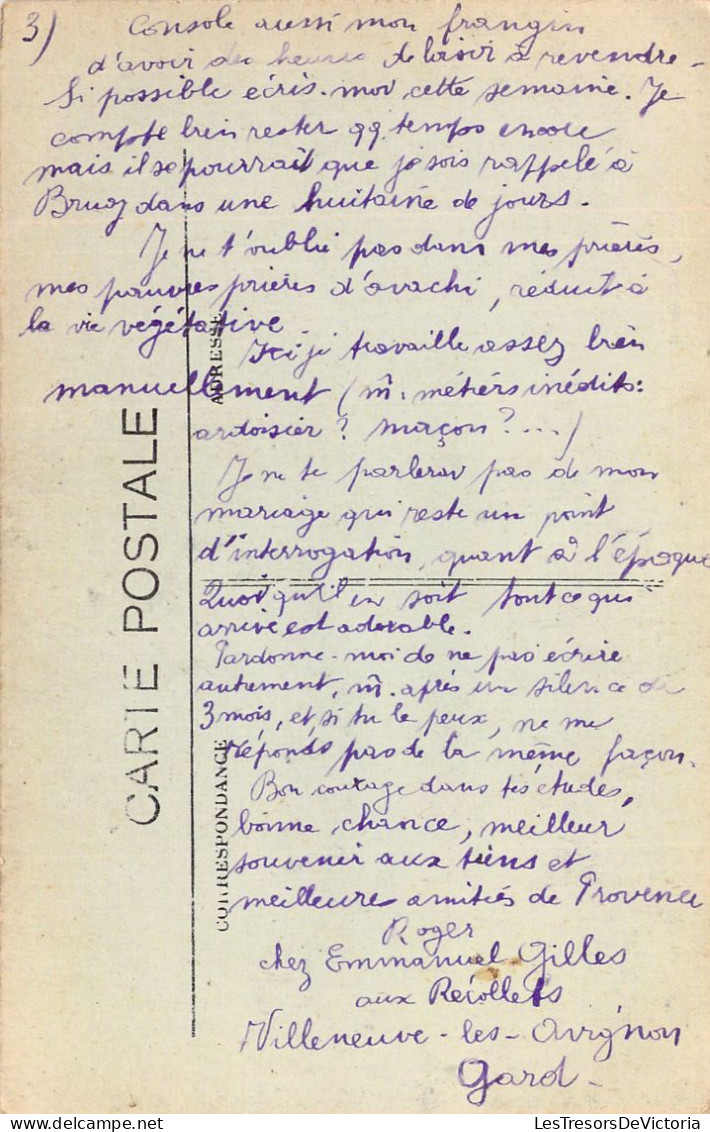 3) Console aussi mon frangin
d'avoir des heures de loisir à revendre -
Si possible écris-moi cette semaine. Je
compte bien rester qq. temps encore
mais il se pourrait que je sois rappelé à
dans une huitaine de jours.
Je ne t'oublie pas dans mes prières,
mes pauvres prières d'avachi, réduit à
la vie végétative.
Ici je travaille assez bien
manuellement (m̂. métiers inédits:
ardoisier? maçon?...)
Je ne te parlerai pas de mon
mariage qui reste un point
d'interrogation, quant à l'époque
Quoiqu'il en soit tout ce qui
arrive est adorable.
Pardonne-moi de ne pas écrire
autrement, m̂. après un silence de
3 mois, et si tu le peux, ne me
réponds pas de la même façon.
Bon courage dans tes études,
bonne chance, meilleur
souvenir aux tiens et
meilleures amitiés de Provence
Roger
chez Emmanuel Gilles
aux Récollets
Villeneuve-les-Avignon
Gard -
CARTE POSTALE
ADRESSE
CORRESPONDANCE
LesTresorsDeVictoria